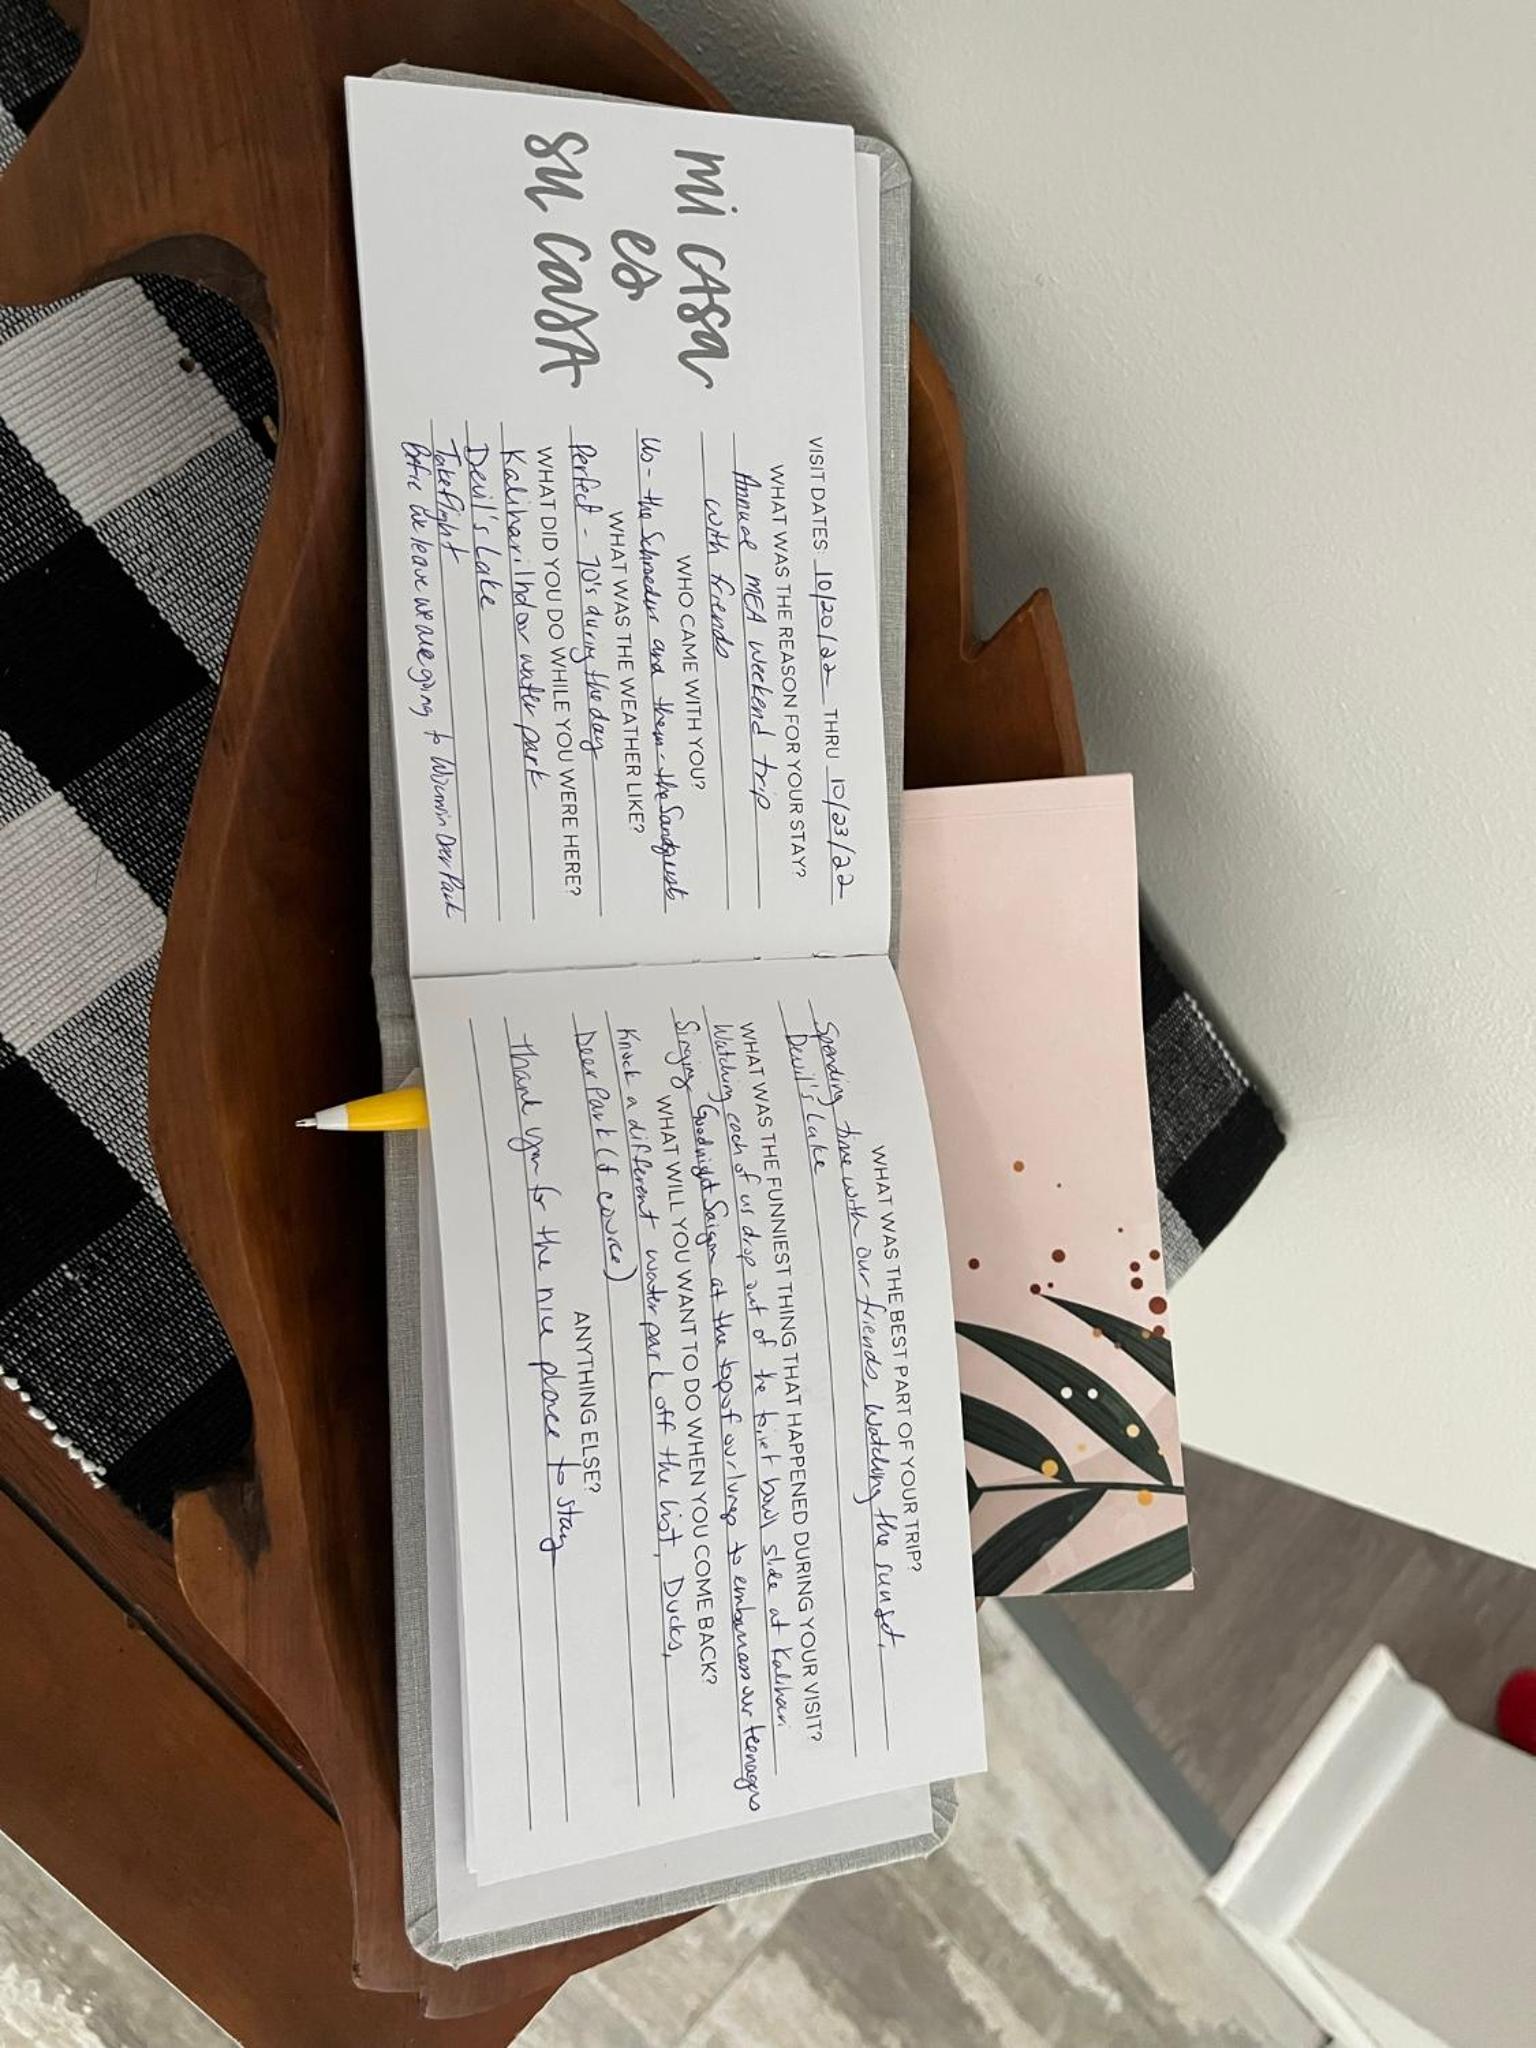 mi casa
es
su casa
VISIT DATES: 10/20/22 THRU 10/23/22
WHAT WAS THE REASON FOR YOUR STAY?
Annual MEA weekend trip
with friends
WHO CAME WITH YOU?
Us - the Schroeders and them - the Sandquists
WHAT WAS THE WEATHER LIKE?
Perfect - 70's during the day
WHAT DID YOU DO WHILE YOU WERE HERE?
Kalihari Indoor water park
Devil's Lake
Take flight
Before we leave we are going to Wisconsin Deer Park
WHAT WAS THE BEST PART OF YOUR TRIP?
Spending time with our friends. Watching the sunset,
Devil's Lake
WHAT WAS THE FUNNIEST THING THAT HAPPENED DURING YOUR VISIT?
Watching each of us drop out of the toilet bowl slide at Kalihari
Singing Goodnight Saigon at the top of our lungs to embarrass our teenagers
WHAT WILL YOU WANT TO DO WHEN YOU COME BACK?
Knock a different water park off the list, Ducks,
Deer Park (of course)
ANYTHING ELSE?
Thank you for the nice place to stay